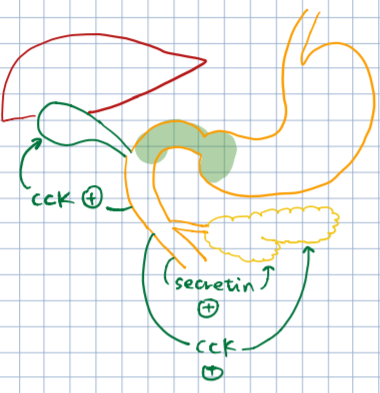 CCK ⊕
secretin
⊕
CCK
⊕